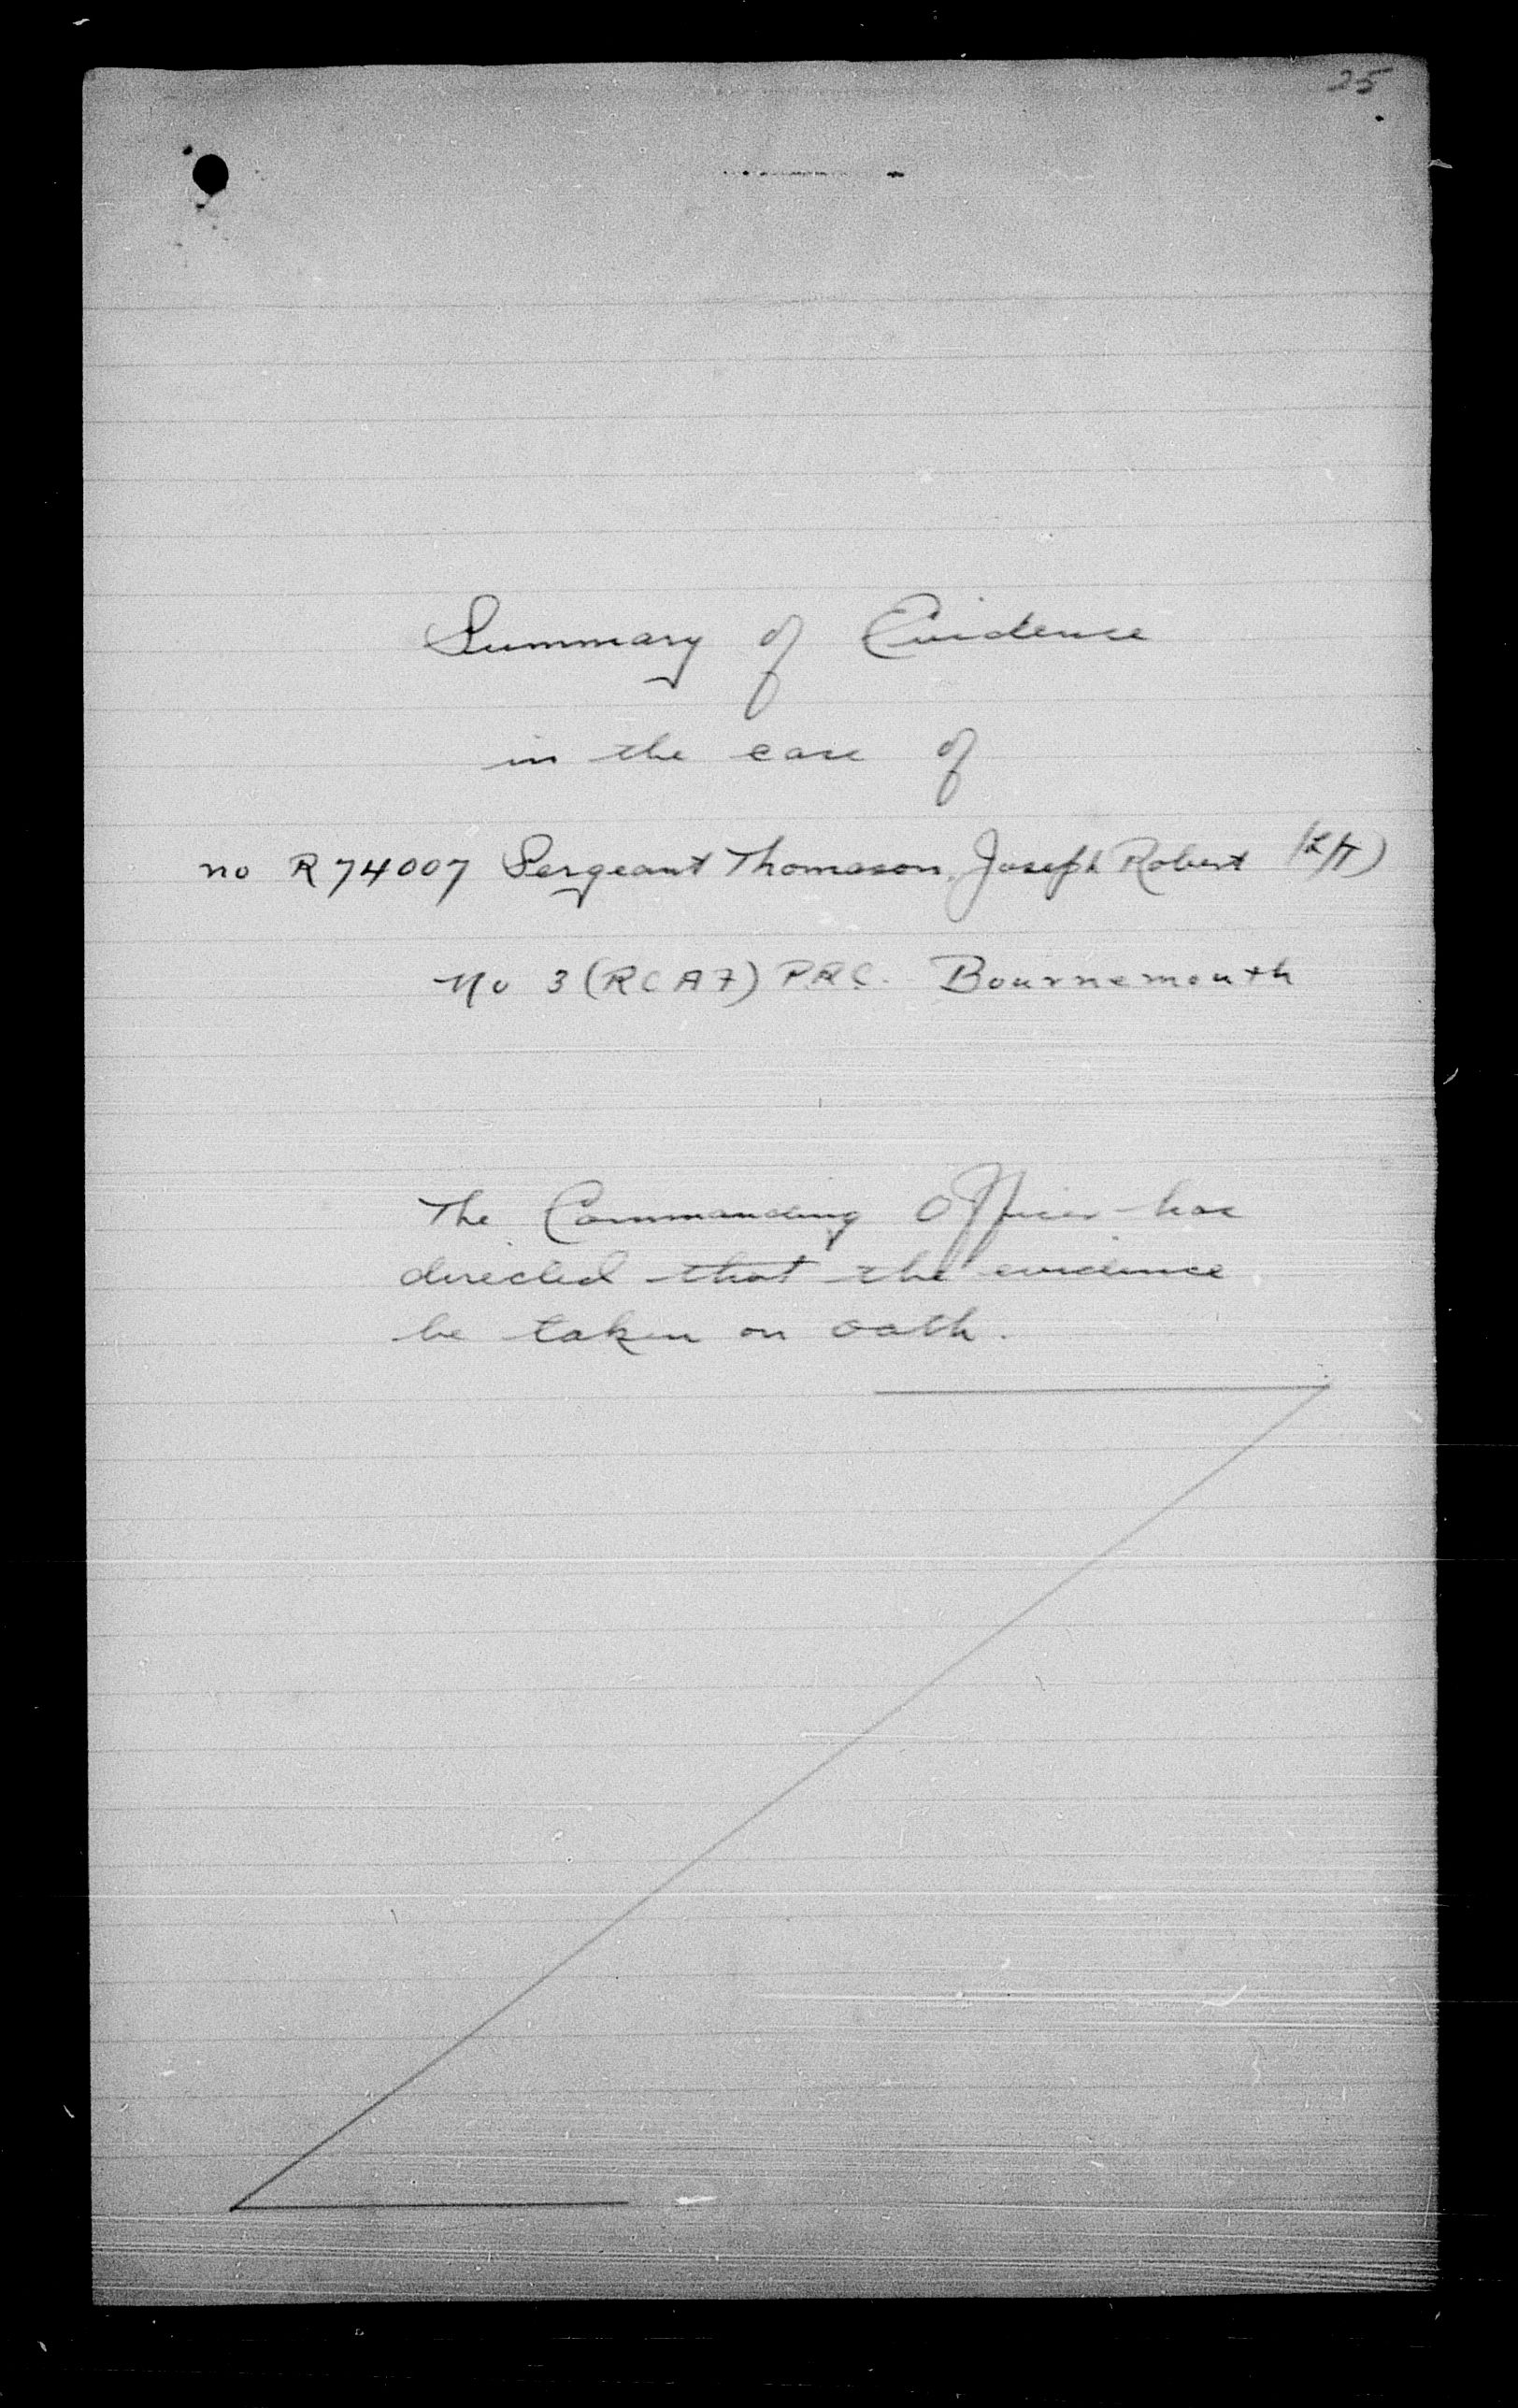 25
Summary of Evidence
in the case of
no R74007 Sergeant Thomason, Joseph Robert
No 3 (RCAF) P.R.C. Bournemouth
The Commanding Officer has
directed that the evidence
be taken on oath.